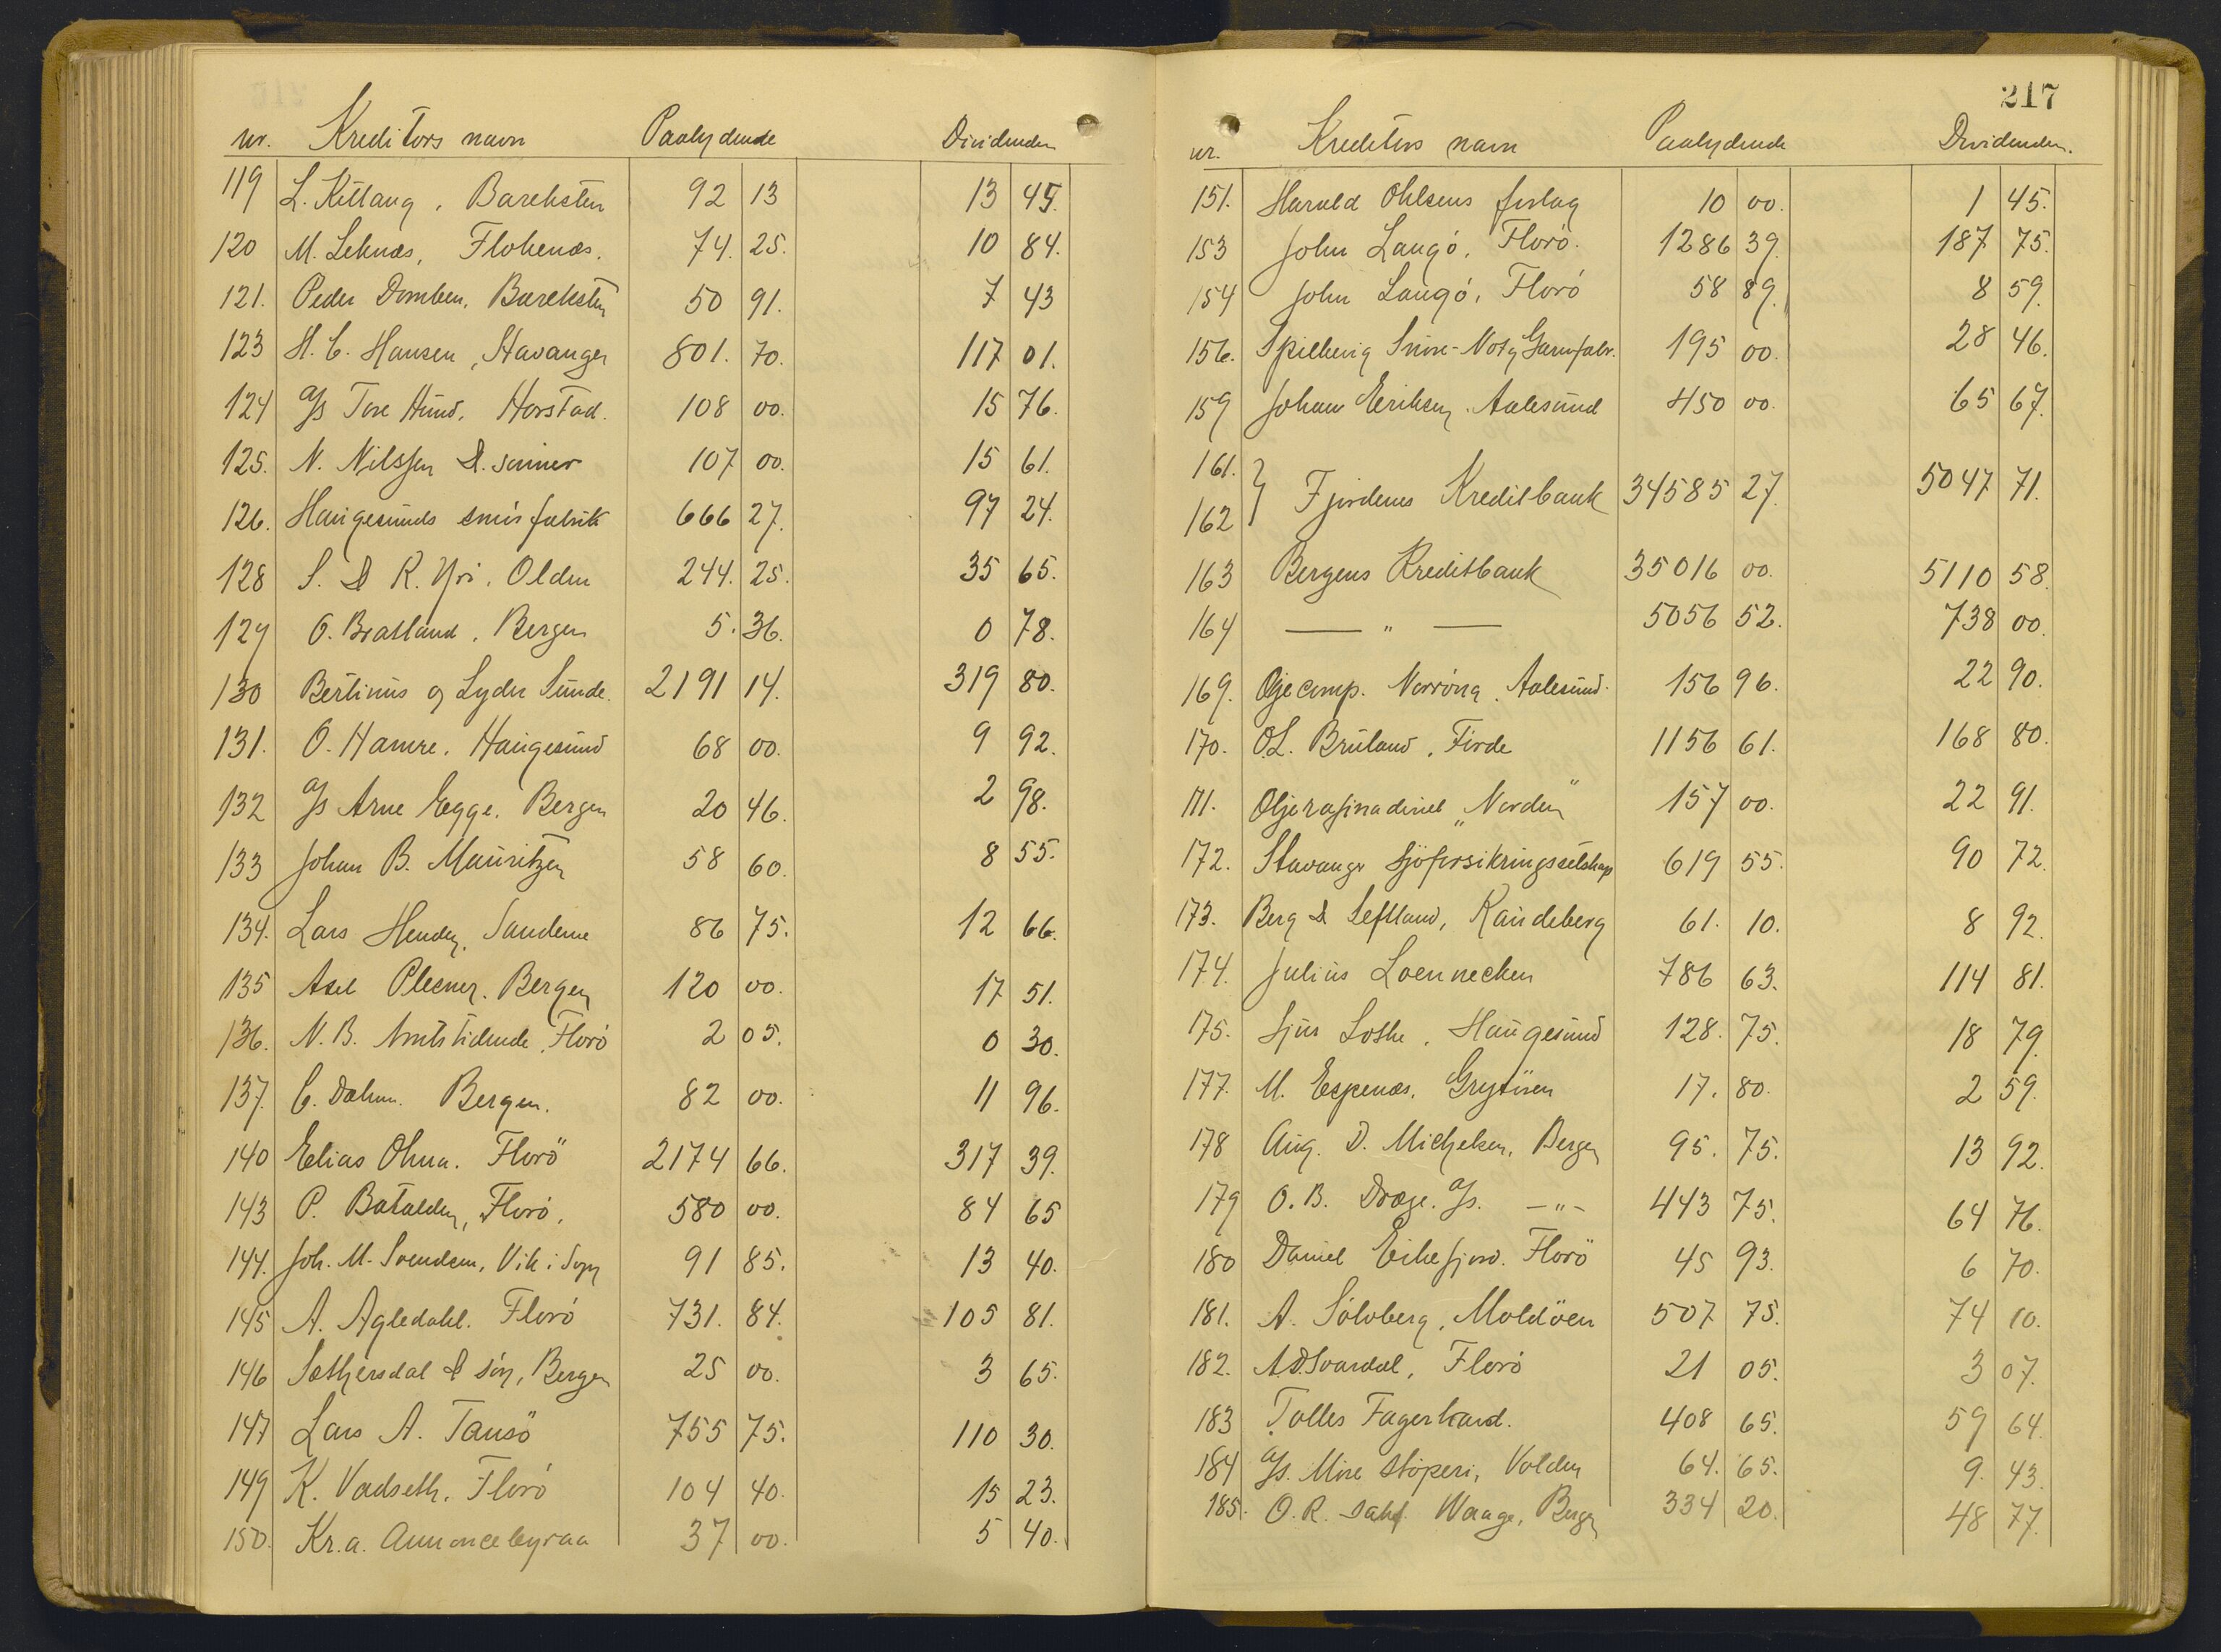 nr. Kreditors navn Paalydende Dividenden
119 L. Killang, Bareksten 92 13 13 45.
120 M. Leknæs, Flokenæs. 74. 25. 10 84.
121. Peder Domben. Bareksten 50 91. 7 43
123 H. C. Hansen, Stavanger 801. 70. 117 01.
124 A/s Tore Hund. Harstad. 108 00. 15 76.
125. N. Nilssen & sønner 107 00. 15 61.
126. Haugesunds snørfabrik 666 27. 97 24.
128 S. & R. Yri, Olden 244. 25. 35 65.
129 O. Bratland, Bergen 5. 36. 0 78.
130 Bertinius og Lyder Sunde. 2191 14. 319 80.
131. O. Hamre. Haugesund 68 00. 9 92.
132 A/s Arne Egge. Bergen 20 46. 2 98.
133 Johan B. Mauritzen 58 60. 8 55.
134. Lars Henden, Sandene 86 75. 12 66.
135 Axel Plesner. Bergen 120 00. 17 51.
136. N. B. Amtstidende, Florö 2 05. 0 30.
137. C. Dahm. Bergen. 82 00. 11 96.
140 Elias Ohma. Florö 2174 66. 317 39.
143 P. Batalden, Florö. 580 00. 84 65
144. Joh. M. Svendsen, Vik i Sogn 91 85. 13 40.
145 A. Agledahl. Florö 731. 84. 105 81.
146 Sæthersdal & søn, Bergen 25 00. 3 65.
147 Lars A. Tansö 755 75. 110 30.
149 K. Vadseth. Florö 104 40. 15 23.
150. Kr.a. Annoncebyraa 37 00. 5 40.
217
nr. Kreditors navn Paalydende Dividenden.
151. Harald Ohlsens forlag 10 00. 1 45.
153 John Langö, Florö. 1286 39. 187 75.
154 John Langö, Florö 58 89. 8 59.
156. Spilkevig Snøre-Not og Garnfabr. 195 00. 28 46.
159 Johan Eriksen. Aalesund 450 00. 65 67.
161.
162 } Fjordenes Kreditbank 34585 27. 5047 71.
163 Bergens Kreditbank 35016 00. 5110 58.
164 — " — 5056 52. 738 00.
169. Oljecomp. Norröna, Aalesund. 156 96. 22 90.
170. O.L. Bruland, Förde 1156 61. 168 80.
171. Oljeraffinadiriet "Norden" 157 00. 22 91.
172. Stavanger Sjöforsikringsselskap 619 55. 90 72.
173. Berg & Leftland, Raudeberg 61. 10. 8 92.
174. Julius Loennecken 786 63. 114 81.
175. Sjur Lothe, Haugesund 128. 75. 18 79.
177. M. Espenæs. Grytören 17. 80. 2 59.
178 Aug. D. Michelsen, Bergen 95. 75. 13 92.
179 O. B. Dræge. A/s. — " — 443 75. 64 76.
180 Daniel Eikefjord. Florö 45 93. 6 70.
181. A. Sölvberg, Moldöen 507 75. 74 10.
182. A.D. Svardal, Florö 21 05. 3 07.
183 Tolles Fagerhand. 408 65. 59 64.
184 A/s. Møre støperi, Volden 64. 65. 9. 43.
185. O. R. Waage, Bergen 334 20. 48 77.